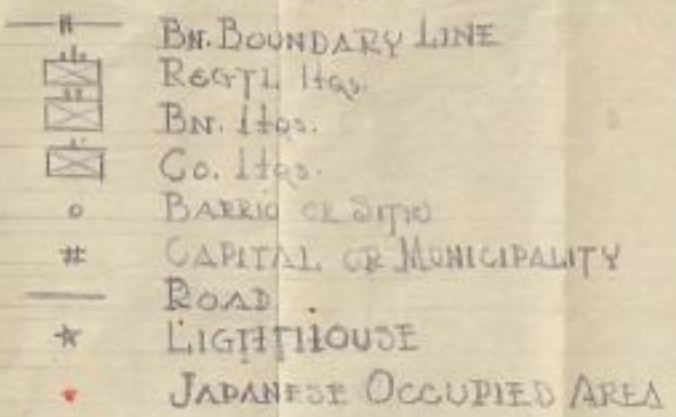 BN. BOUNDARY LINE
REGTL Hqs.
BN. Hqs.
Co. Hqs.
BARRIO OR SITIO
# CAPITAL OR MUNICIPALITY
ROAD
LIGHTHOUSE
JAPANESE OCCUPIED AREA